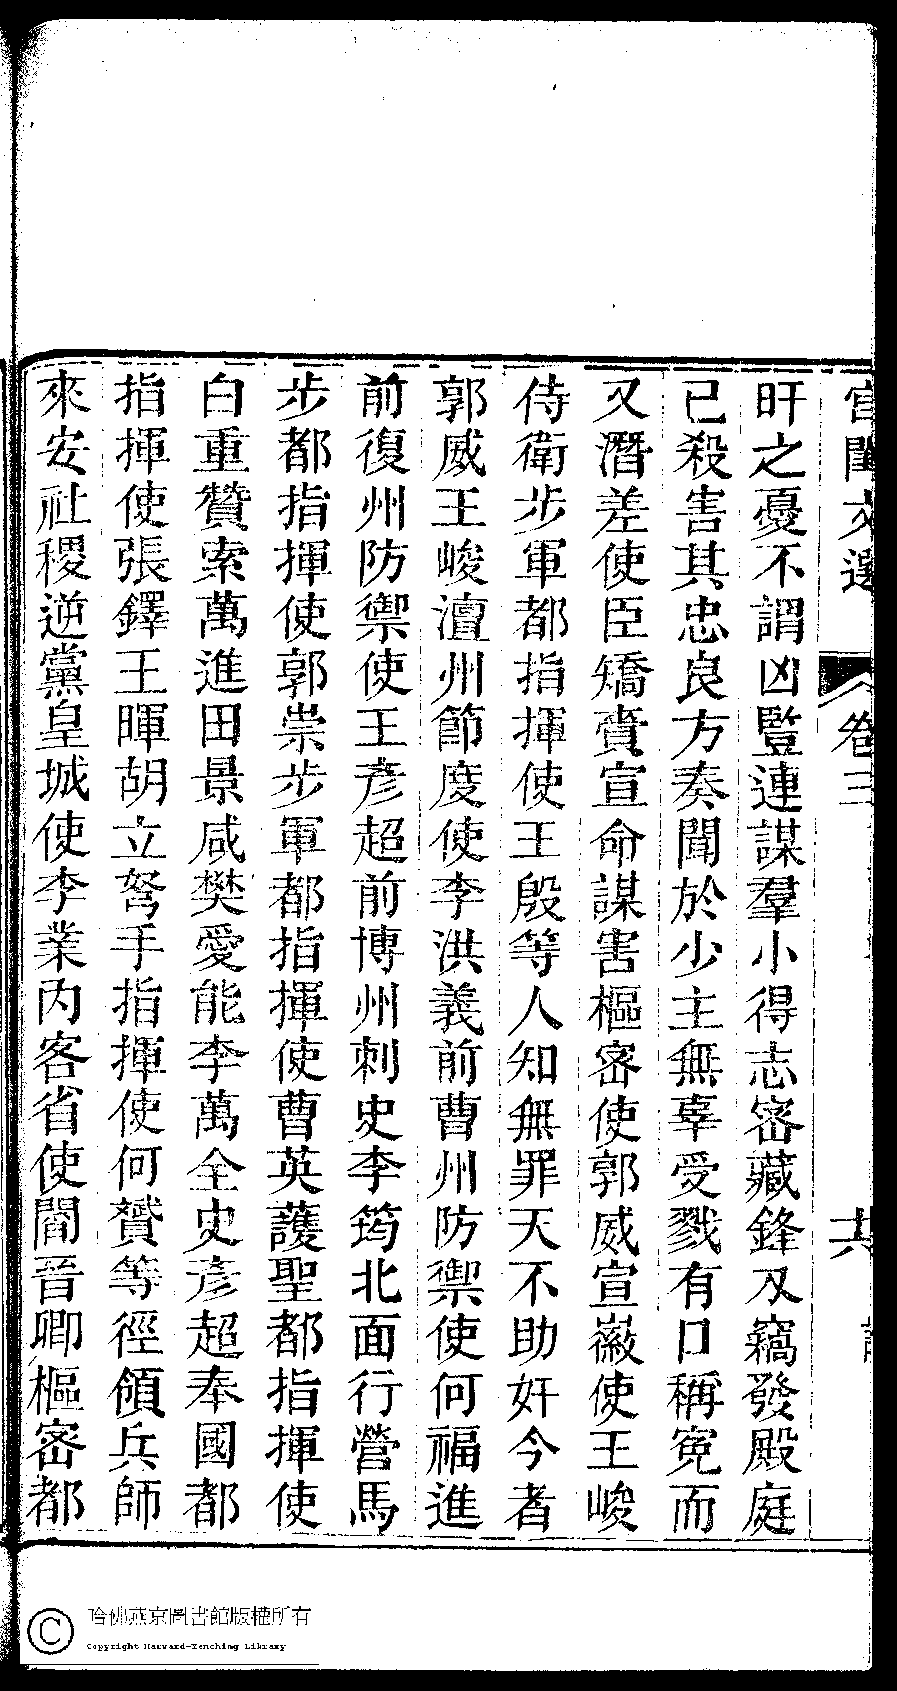 宫閨文選 卷三
旰之憂不謂凶豎連謀羣小得志密藏鋒刃竊發殿庭
已殺害其忠良方奏聞於少主無辜受戮有口稱寃而
又潛差使臣矯賷宣命謀害樞密使郭威宣徽使王峻
侍衛步軍都指揮使王殷等人知無罪天不助奸今者
郭威王峻澶州節度使李洪義前曹州防禦使何福進
前復州防禦使王彥超前博州刺史李筠北面行營馬
步都指揮使郭崇步軍都指揮使曹英護聖都指揮使
白重贊索萬進田景咸樊愛能李萬全史彥超奉國都
指揮使張鐸王暉胡立弩手指揮使何贇等徑領兵師
來安社稷逆黨皇城使李業内客省使閻晉卿樞密都
哈佛燕京圖書館版權所有
Copyright Harvard-Yenching Library